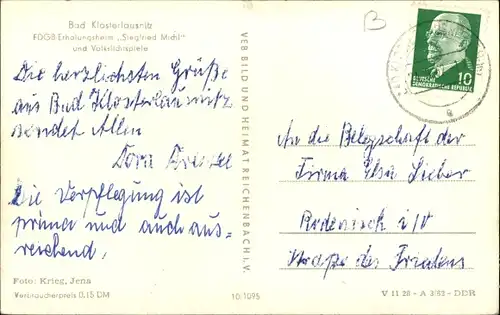 Bad Klosterlausnitz
FDGB-Erholungsheim „Siegfried Michl"
und Volkslichtspiele
Die herzlichsten Grüße
aus Bad Klosterlausnitz
sendet Allen
Dora
Die Verpflegung ist
prima und auch aus-
reichend,
Foto: Krieg, Jena
Verbraucherpreis 0,15 DM
VEB BILD UND HEIMAT REICHENBACH I. V.
10/1095
B
DEUTSCHE
DEMOKRATISCHE REPUBLIK
10
An die Belegschaft der
Firma Elsa
Rodewisch i/V
Straße des Friedens
V 11 28 - A 3/63 - DDR